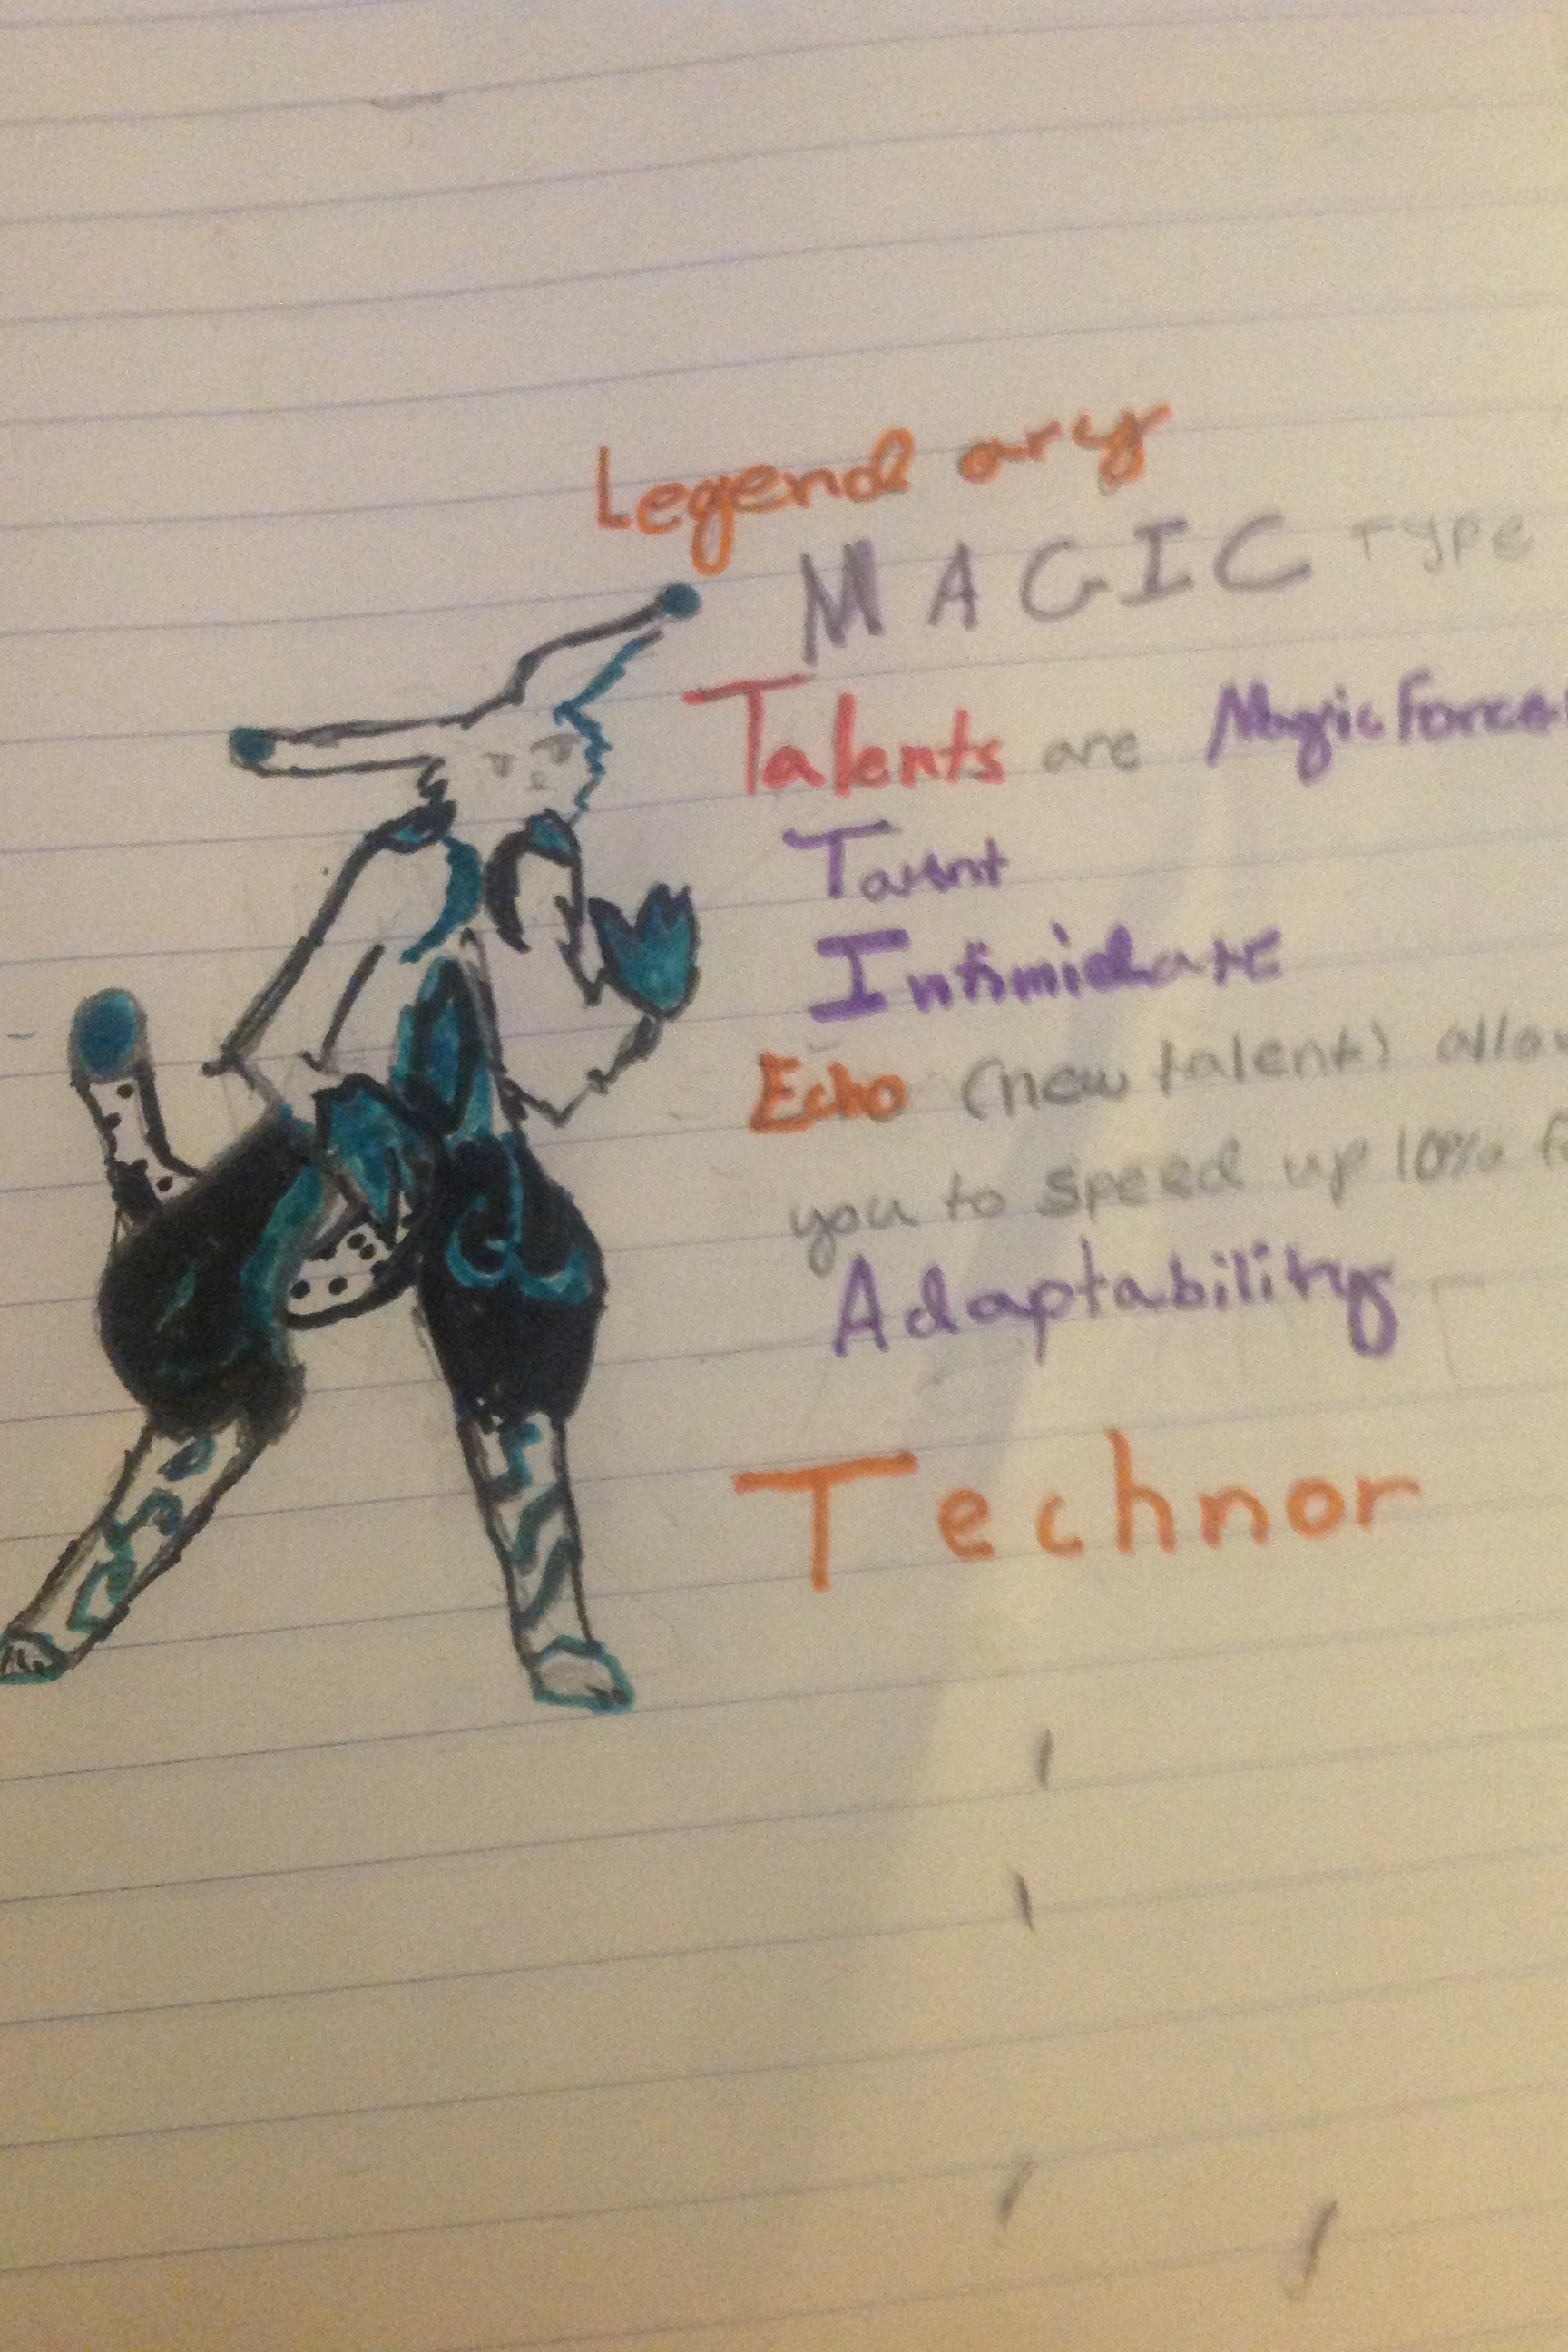 Legendary
MAGIC TYPE
Talents are Magic Force
Taunt
Intimidate
Echo (new talent) allow
you to speed up 10% fo
Adaptability
Technor